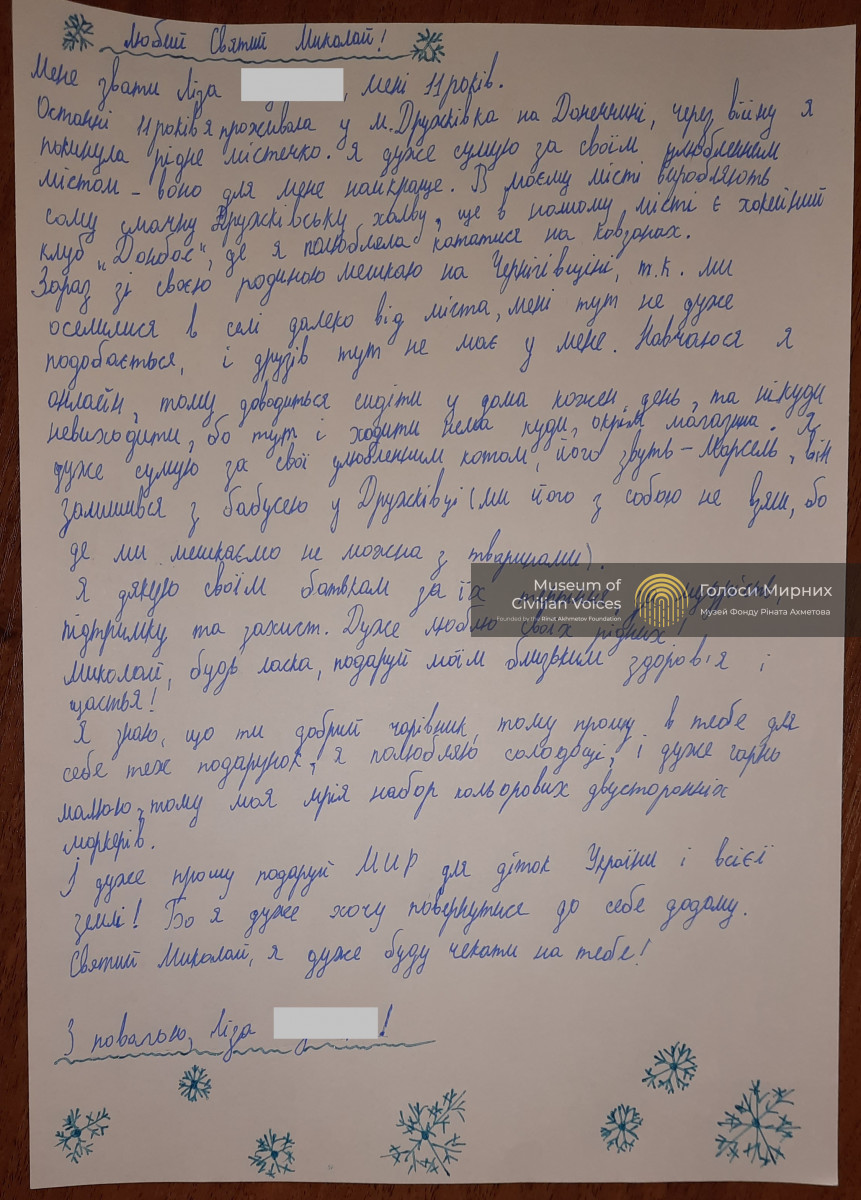 Любий Святий Миколай!
Мене звати Ліза , мені 11 років.
Останні 11 років я проживала у м. Дружківка на Донеччині, через війну я
покинула рідне містечко. Я дуже сумую за своїм улюбленним
містом - воно для мене найкраще. В моєму місті виробляють
саму смачну Дружківську халву, ще в нашому місті є хокейний
клуб "Донбас", де я полюбляла кататися на ковзанах.
Зараз зі своєю родиною мешкаю на Чернігівщіні, т.к. ми
оселилися в селі далеко від міста, мені тут не дуже
подобається, і друзів тут не має у мене. Навчаюся я
онлайн, тому доводиться сидіти у дома кожен день, та нікуди
невиходити, бо тут і ходити нема куди, окрім магазина. Я
дуже сумую за свої улюбленним котом, його звуть - Марсель, він
залишився з бабусею у Дружківці (ми його з собою не взяли, бо
де ми мешкаємо не можна з тваринами).
Я дякую своїм батькам за їх
підтримку та захист. Дуже люблю своїх рідних!
Миколай, будь ласка, подаруй моїм близьким здоров'я і
щастья!
Я знаю, що ти добрий чарівник, тому прошу в тебе для
себе теж подарунок, я полюбляю солодощі, і дуже гарно
малюю, тому моя мрія набор кольорових двусторонніх
маркерів.
І дуже прошу подаруй МИР для діток України і всієї
землі! Бо я дуже хочу повернутися до себе додому.
Святий Миколай, я дуже буду чекати на тебе!
З повагою, Ліза !
Museum of
Civilian Voices
Founded by the Rinat Akhmetov Foundation
Голоси Мирних
Музей Фонду Ріната Ахметова